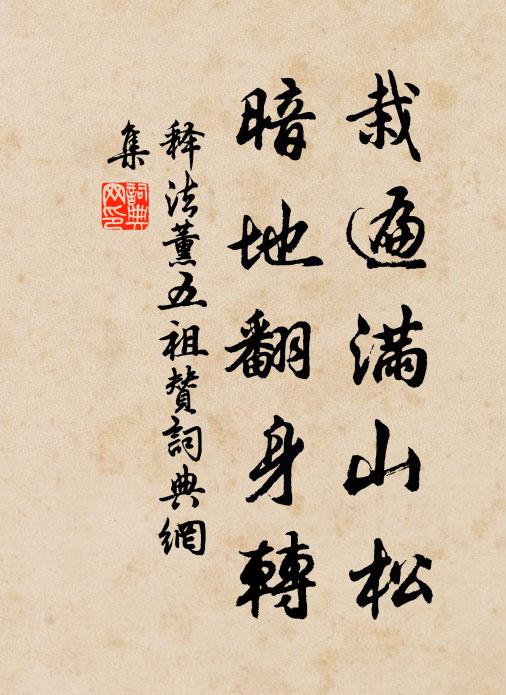 栽遍滿山松
暗地翻身轉
释法薰五祖赞詞典網
集
詞典網印